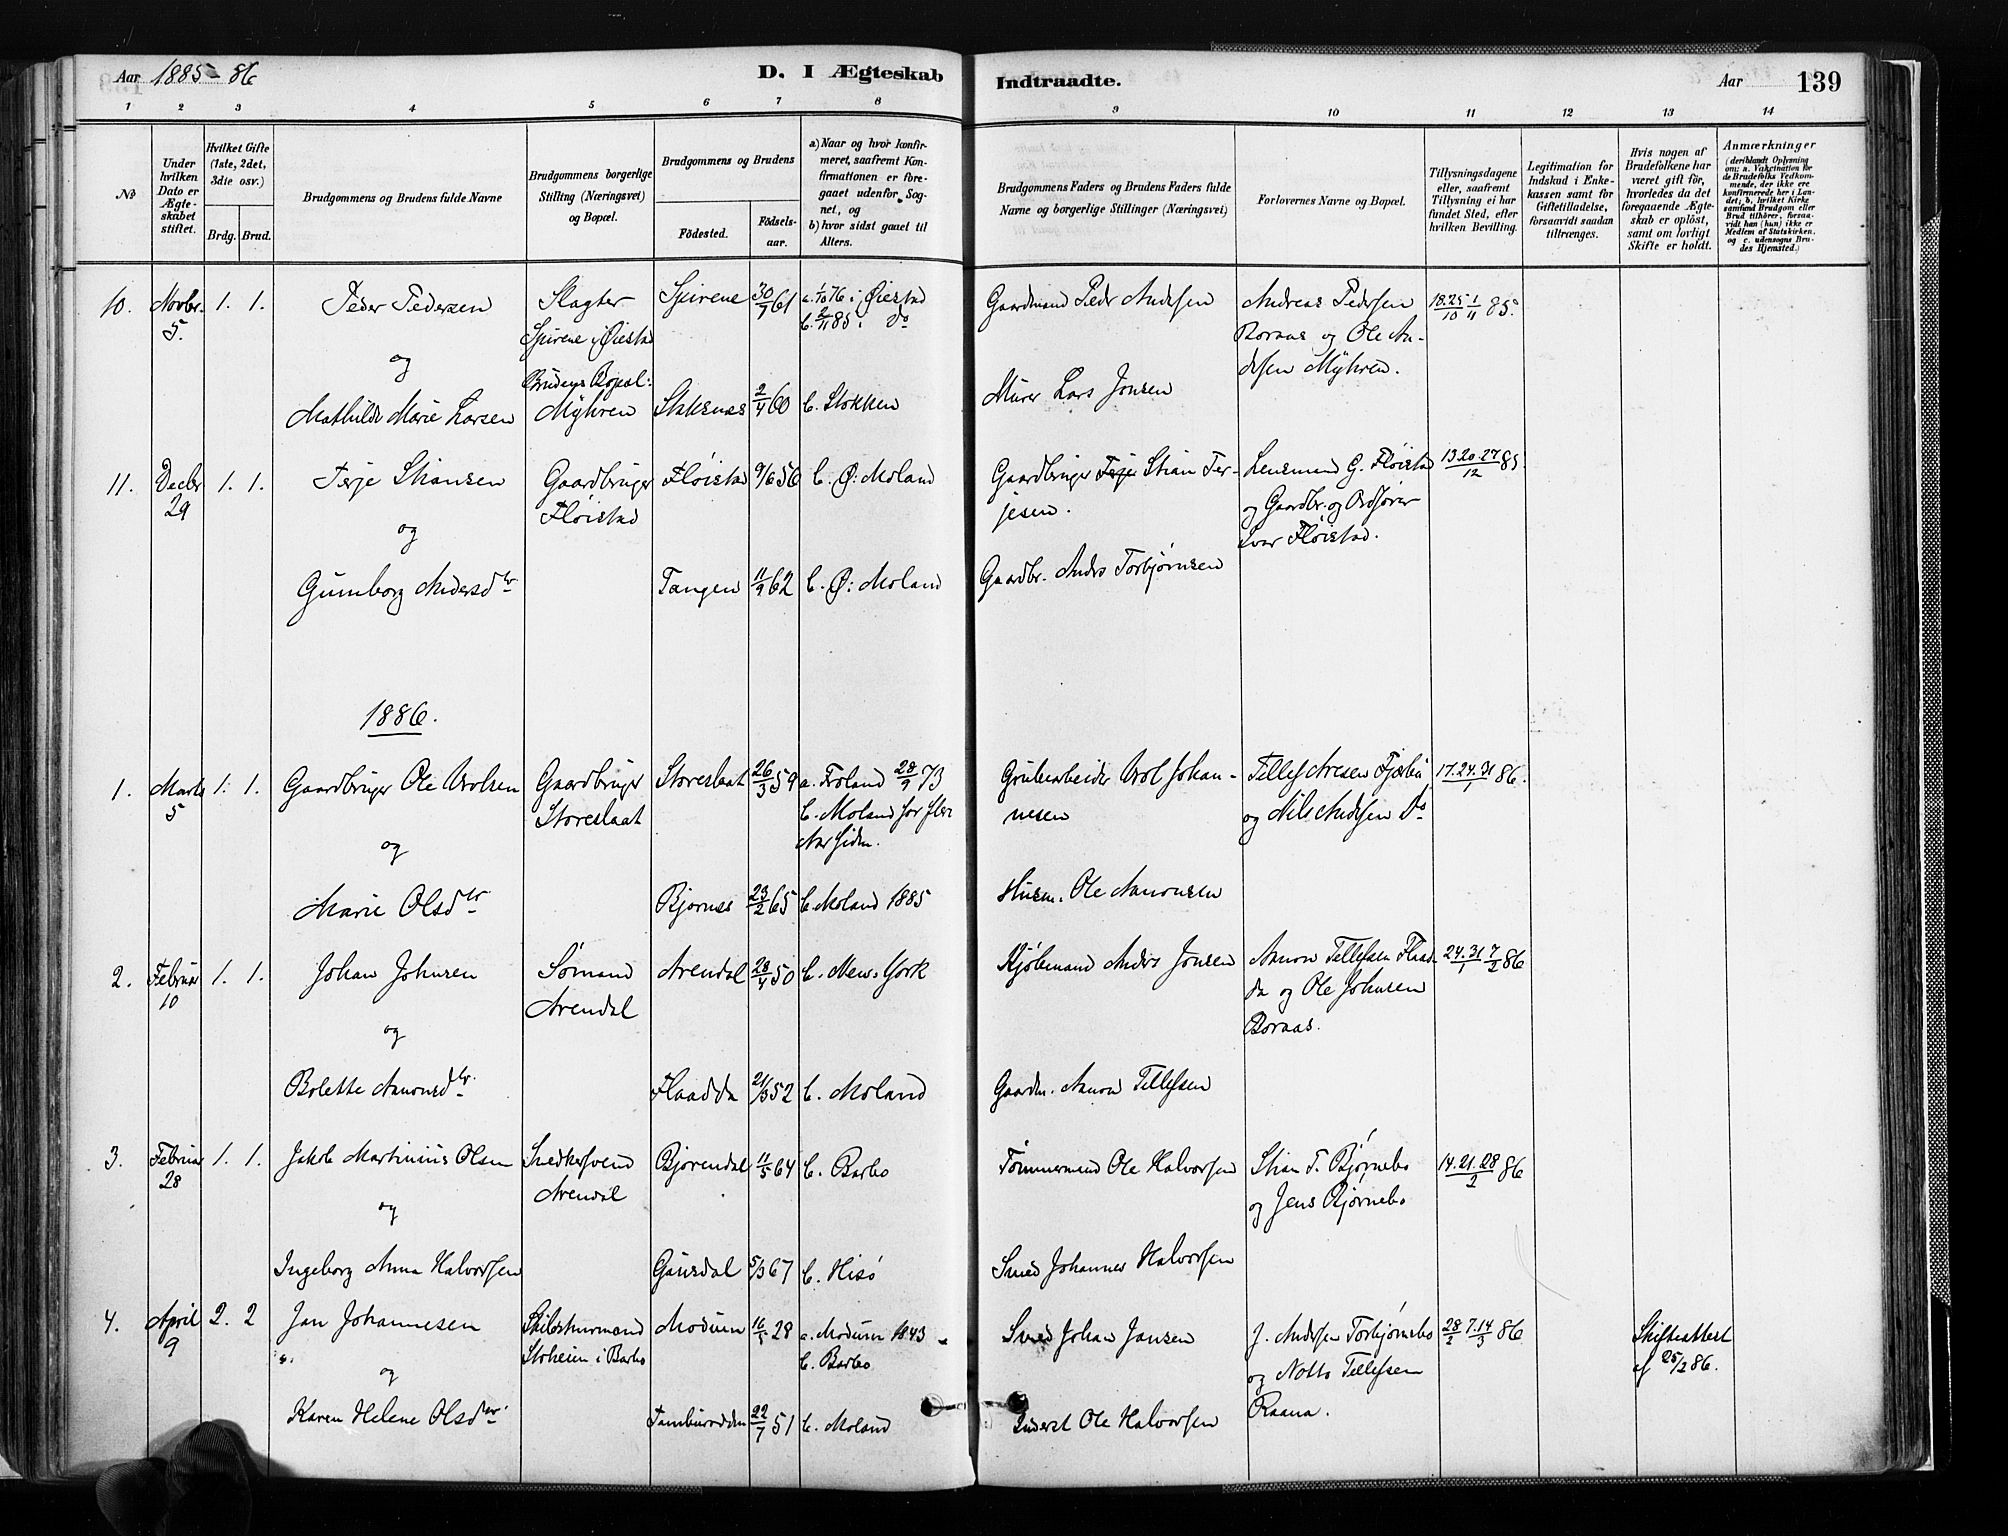 Aar 1885-86
D. I Ægteskab
Indtraadte.
Aar
139
1 2 3 4 5 6 7 8 9 10 11 12 13 14
No
Under hvilken Dato er Ægte-skabet stiftet.
Hvilket Gifte (1ste, 2det, 3die osv.)
Brdg. Brud.
Brudgommens og Brudens fulde Navne
Brudgommens borgerlige Stilling (Næringsvei) og Bopæl.
Brudgommens og Brudens
Fødested.
Fødsels-aar.
a) Naar og hvor konfir-meret, saafremt Kon-firmationen er fore-gaaet udenfor Sog-net, og
b) hvor sidst gaaet til Alters.
Brudgommens Faders og Brudens Faders fulde Navne og borgerlige Stillinger (Næringsvei)
Forlovernes Navne og Bopæl.
Tillysningsdagene eller, saafremt Tillysning ei har fundet Sted, efter hvilken Bevilling.
Legitimation for Indskud i Enke-kassen samt for Giftetilladelse, forsaavidt saadan tiltrænges.
Hvis nogen af Brudefolkene har været gift før, hvorledes da det foregaaende Ægte-skab er opløst, samt om lovligt Skifte er holdt.
Anmærkninger
(deriblandt Oplysning om: a. Vaktination for de Brudefolks Vedkom-mende, der ikke ere konfirmerede her i Lan-det; b. hvilket Kirke-samfund Brudgom eller Brud tilhører, forsaa-vidt han (hun) ikke er Medlem af Statskirken, og c. udensogns Bru-des Hjemsted.)
10. Novbr. 5. 1. 1. Peder Pedersen
Slagter Spirene i Øiestad
Spirene 30/7 61
a. 1/10 76 i Øiestad
b. 2/11 85 i do
Gaardmand Pedr Andersen
Andreas Pedersen Boraas og Ole An-dersen Myhren.
18.25/10 1/11 85.
og
Mathilde Marie Larsen
Brudens Bopæl: Myhren
2/4 60
b. Stokken
Murer Lars Jonsen
11. Decbr 29 1. 1. Terje Stiansen
Gaardbruger Fløistad
Fløistad 9/6 56 b. Ø: Moland
Gaardbruger Stian Ter-jesen.
Lensmand G. Fløistad og Gaardbr. og Ordfører Ivar Fløistad.
13.20.27/12 85
og
Gunborg Andersdtr
Tangen 11/9 62 b. Ø: Moland
Gaardbr. Anders Torbjørnsen
1886.
1. Marts 5 1. 1. Gaardbruger Ole Wrolsen
Gaardbruger Storeslaat
Storeslaat 26/3 59
a. Froland 28/9 73
b. Moland for flere Aar siden.
Grubearbeider Wrol Johan-nesen
Tellef Aresen Fjærbu og Nils Andersen Do
17.24.31/1 86.
og
Marie Olsdtr
Bjørnes 23/2 65 b. Moland 1885
Husm. Ole Aanonsen
2. Februar 10 1. 1. Johan Johnsen
Sømand Arendal
Arendal 28/4 50 b. New-York
Kjøbmand Anders Jonsen
Aanon Tellefsen Flaad-da og Ole Johnsen Boraas.
24.31/1 7/2 86
og
Bolette Aanonsdtr.
Flaadda 21/3 52 b. Moland
Gaardm. Aanon Tellefsen
3. Februar 28 1. 1. Jakob Martinius Olsen
Snedkersvend Arendal
Bjorendal 11/5 64 b. Barbo
Tømmermand Ole Halvorsen
Stian T. Bjørnebo og Jens Bjørnebo
14.21.28/2 86
og
Ingeborg Anna Halvorsen
Gausdal 5/3 67 b. Hisø
Smed Johannes Halvorsen
4. April 9 2. 2 Jan Johannesen
i Barbo
Modum 16/5 28
a. Modum 1843
b. Barbo
Smed Johan Jansen
J. Andersen Torbjørnsbo og Notto Tellefsen Raana.
28/2 7.14/3 86
Skifteattest af 25/2 86.
og
Karen Helene Olsdtr
22/7 51 b. Moland
Inderst Ole Halvorsen